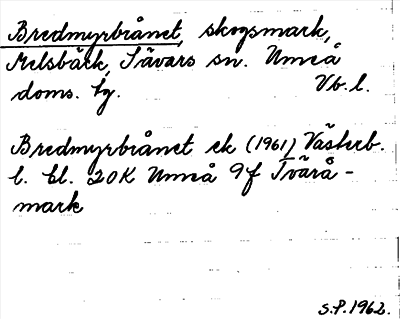 Bredmyrbrånet, skogsmark,
Melsbäck, Sävars sn. Umeå
doms. tg. Vb. l.
Bredmyrbrånet ek (1961) Västerb.
l. bl. 20K Umeå 9f Tvärå-
mark
S.P. 1962.